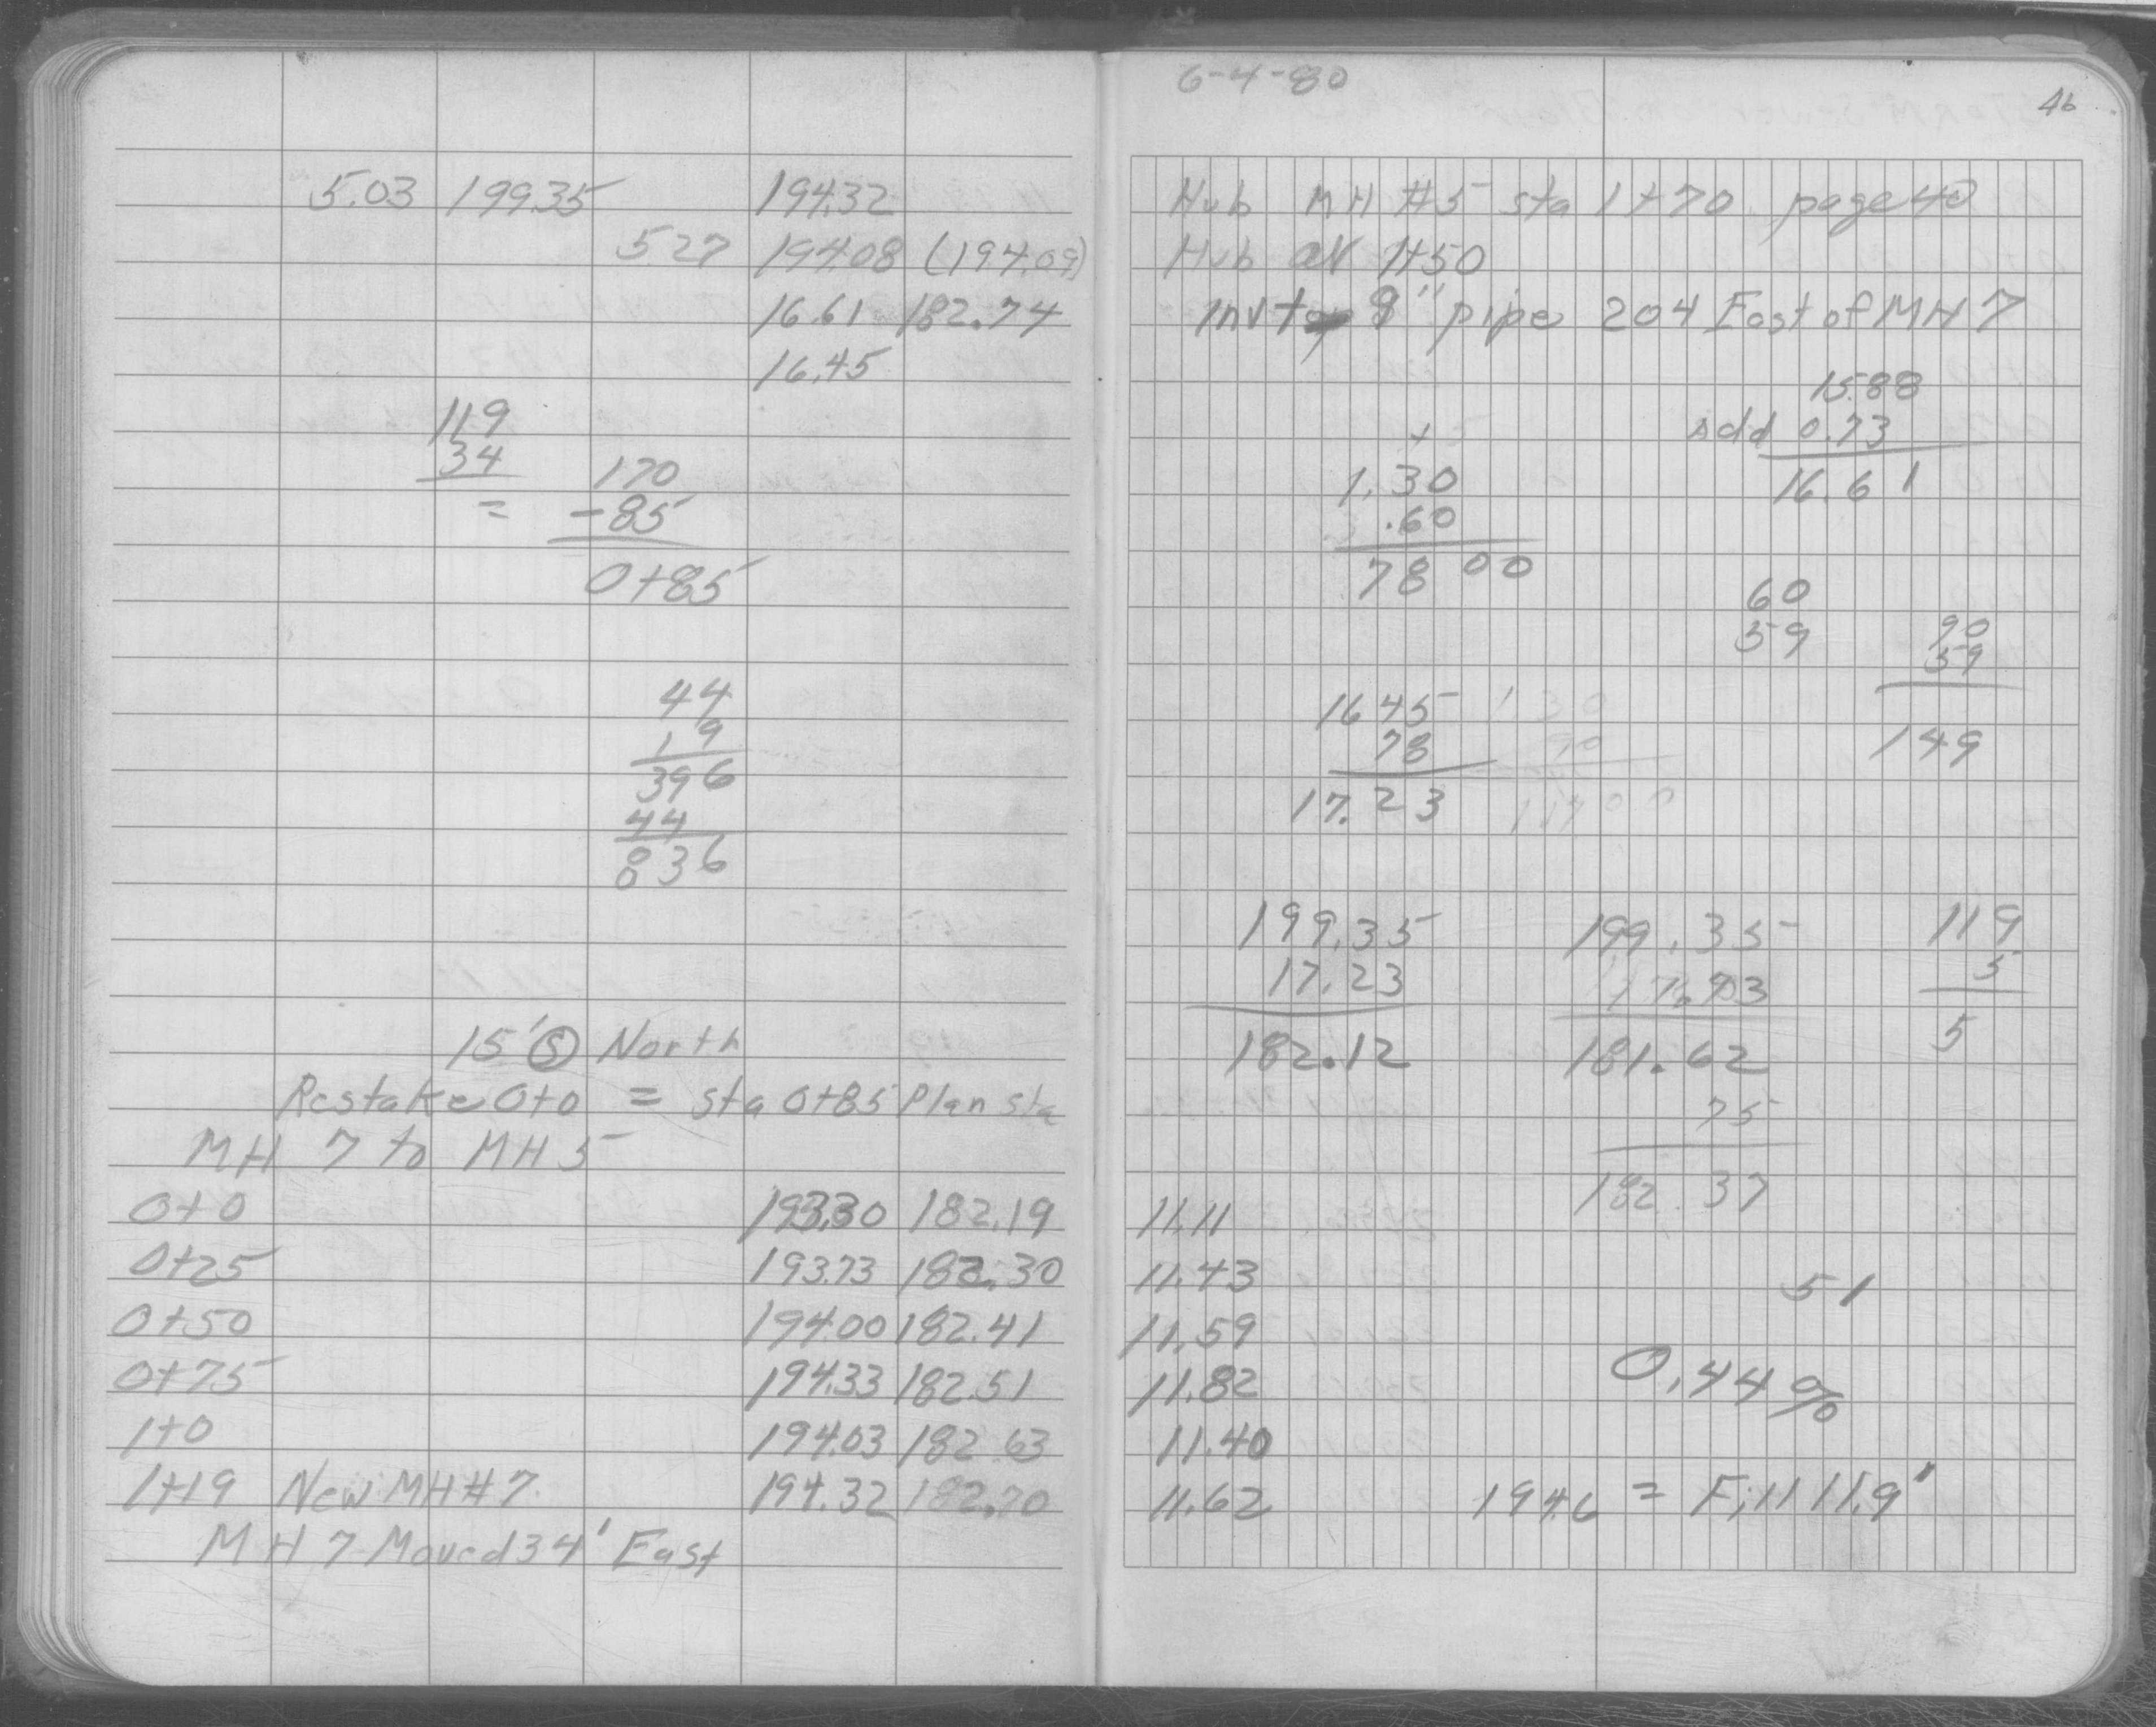 5.03 199.35 194.32
5.27 194.08 (194.09)
16.61 182.74
16.45
119
34
=
170
-85
0+85
44
19
396
44
836
15' Ⓢ North
Restake 0+0 = sta 0+85 Plan sta
MH 7 to MH 5
0+0 193.30 182.19
0+25 193.73 182.30
0+50 194.00 182.41
0+75 194.33 182.51
1+0 194.03 182.63
1+19 New MH #7 194.32 182.70
MH 7 Moved 34' East
6-4-80
46
Hub MH #5 sta 1+70 page 40
Hub on 1+50
Inv 8" pipe 204 East of MH 7
15.88
add 0.73
16.61
+
1.30
.60
78 00
60
59
90
59
149
1645
78
17.23
1 30
90
199.35
17.23
182.12
199.35
181.62
75
182.37
119
5
5
11.11
11.43
11.59
11.82
11.40
11.62
51
0.44%
194.6 = Fill 11.9'